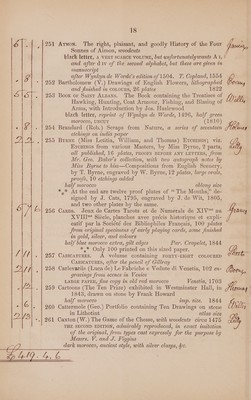 18
251 AYMON. The right, plaisant, and goodly History of the Four
Sonnes of Aimon, woodcuts
black letter, A VERY SCARCE VOLUME, but unfortunately wants
and after of the second alphabet, but these are given in
manuscript
after Wynkyn de Worde's edition of 1504. T. Copland, 1554
252 Bartholomew (V.) Drawings of English Flowers, lithographed
and finished in colours, 26 plates 1822
253 BOOK OF SAINT ALBANS. The Book containing the Treatises of
Hawking, Hunting, Coat Armour, Fishing, and Blasing of
Arms, with Introduction by Jos. Haslewood
black letter, reprint of Wynkyn de Worde, 1496, half green
morocco, uncut (1810)
254 Brandard (Rob.) Scraps from Nature, a series of seventeen
etchings on india paper
255 BYRNE (Miss Letitia, William, and Thomas) ETCHINGS;
ETCHINGS from various Masters, by Miss Byrne, 2 parts,
all published, 16 plates, PROOFS BEFORE ANY LETTERS, from
Mr. Geo. Baker's collection, with two autograph notes by
Miss Byrne to him—Compositions from English Scenery,
by T. Byrne, engraved by W. Byrne, 12 plates, large scale,
proof, 10 etchings added
half morocco oblong size
*** At the end are twelve proof plates of "The Months," de-
signed by J. Cats, 1795, engraved by J. de Wit, 1805,
and two other plates by the same.
256 CARDS. Jeux de Cartes Tarots et de Numerals de XIVme au
XVIIIme Siècle, planches avec précis historique et expli-
catif par la Société des Bibliophiles Français, 100 plates
from original specimens of early playing cards, some finished
in gold, silver, and colours
half blue morocco extra, gilt edges Par. Crapelet, 1844
*** Only 100 printed on this sized paper.
257 CARICATURES. A volume containing FORTY-EIGHT COLOURED
CARICATURES, after the pencil of Gillray
258 Carlevariis (Luca de) Le Fabriche e Vedute di Venetia, 102 en-
gravings from scenes in Venice
LARGE PAPER, fine copy in old red morocco Venetia, 1703
259 Cartoons (The Ten Prize) exhibited in Westminster Hall, in
1843, drawn on stone by Frank Howard
half morocco imp. size. 1844
260 Cattermole (Geo.) Portfolio containing Ten Drawings on stone
in Lithotint atlas size
261 CAXTON (W.) The Game of the Chesse, with woodcuts circa 1475
THE SECOND EDITION, admirably reproduced, in exact imitation
of the original, from types cast expressly for the purpose by
Messrs. V. and J. Figgins
dark morocco, ancient style, with silver clasps, &c.
£419. 4. 6